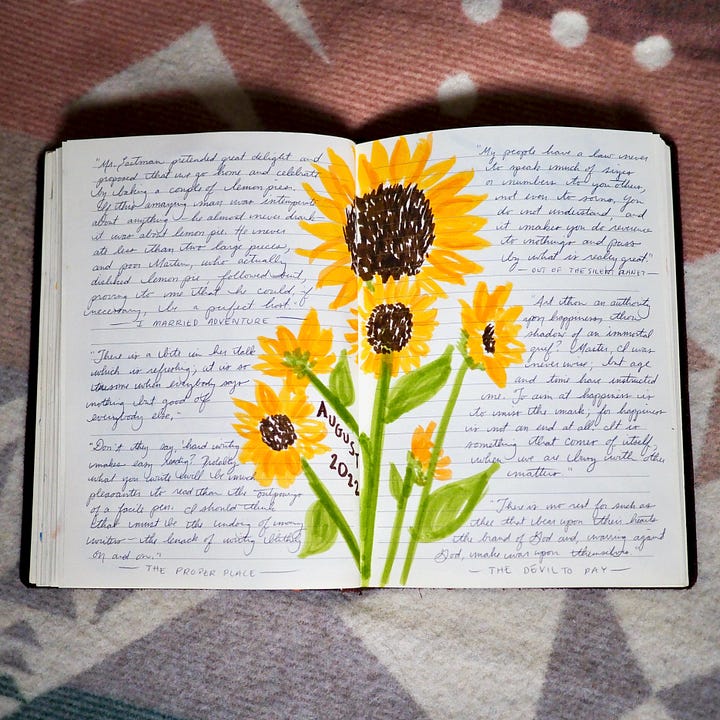 "Mr. Eastman pretended great delight and
proposed that we go home and celebrate
by baking a couple of lemon pies.
If this amazing man was intemperate
about anything - he almost never drank -
it was about lemon pie. He never
ate less than two large pieces,
and poor Martin, who actually
disliked lemon pie followed suit,
proving to me that he could, if
necessary, be a perfect host."
— I MARRIED ADVENTURE —
"There is a bite in her talk
which is refreshing; it is so
tiresome when everybody says
nothing but good of
everybody else."
"Don't they say hard writing
makes easy reading? Probably
what you write will be much
pleasanter to read than the outpourings
of a facile pen. I should think
that must be the undoing of many
writers - the knack of writing glibly
on and on."
— THE PROPER PLACE —
AUGUST
2022
"My people have a law never
to speak much of sizes
or numbers to you others,
not even to sorns. You
do not understand, and
it makes you do reverence
to nothings and pass
by what is really great."
— OUT OF THE SILENT PLANET —
"Art thou an authority
upon happiness, thou
shadow of an immortal
grief? Master, I was
never wise, but age
and time have instructed
me. To aim at happiness is
to miss the mark; for happiness
is not an end at all. It is
something that comes of itself
when we are busy with other
matters."
"There is no rest for such as
thee that bear upon their hearts
the brand of God and, warring against
God, make war upon themselves.
— THE DEVIL TO PAY —